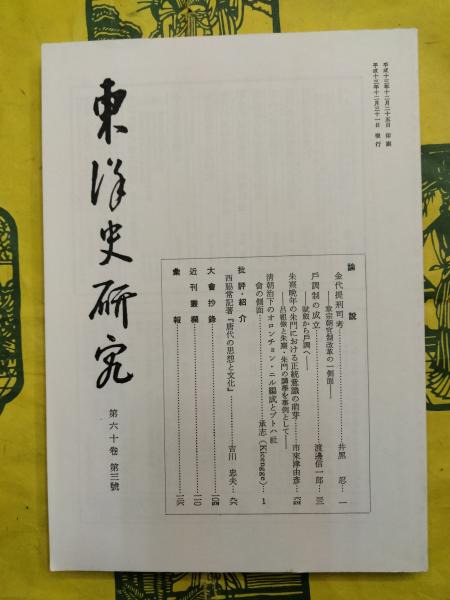 平成十三年十二月二十五日 印刷
平成十三年十二月三十一日 發行
東洋史研究
第六十卷 第三號
論說
金代提刑司考…井黑 忍…一
——章宗朝官制改革の一側面——
戶調制の成立…渡邊信一郎…三
——賦斂から戶調へ——
朱熹晚年の朱門における正統意識の萌芽…市來津由彥
——呂祖儉と朱熹・朱門の講學を事例として——
清朝治下のオロンチョン・ニル編成とブトハ社
會の側面…承志(Kicengge)…1
批評・紹介
西脇常記著『唐代の思想と文化』…吉川 忠夫
大會抄錄
近刊叢欄
彙報